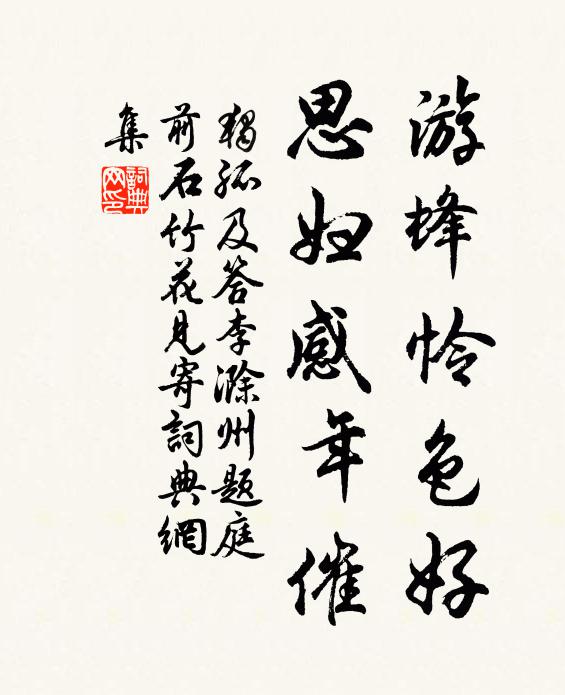 游蜂怜色好
思妇感年催
独孤及答李滁州题庭
前石竹花见寄詞典網
集
詞典
网印